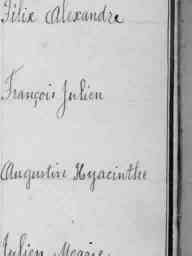 Félix Alexandre
François Julien
Augustine Hyacinthe
Julien